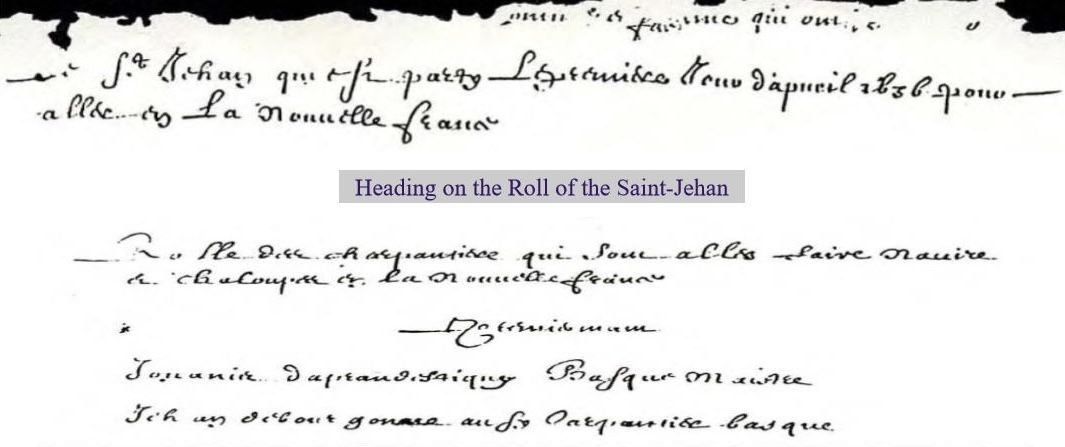 femmes qui ont
St Jehan qui est party Le premier Jour d'apvril 1636 pour
aller en La nouvelle france
Heading on the Roll of the Saint-Jehan
Rolle des charpantiers qui sont alles faire navire
et chaloupes en la nouvelle france
premieremant
Jouanis Basque maistre
Jehan aussy Carpantier basque